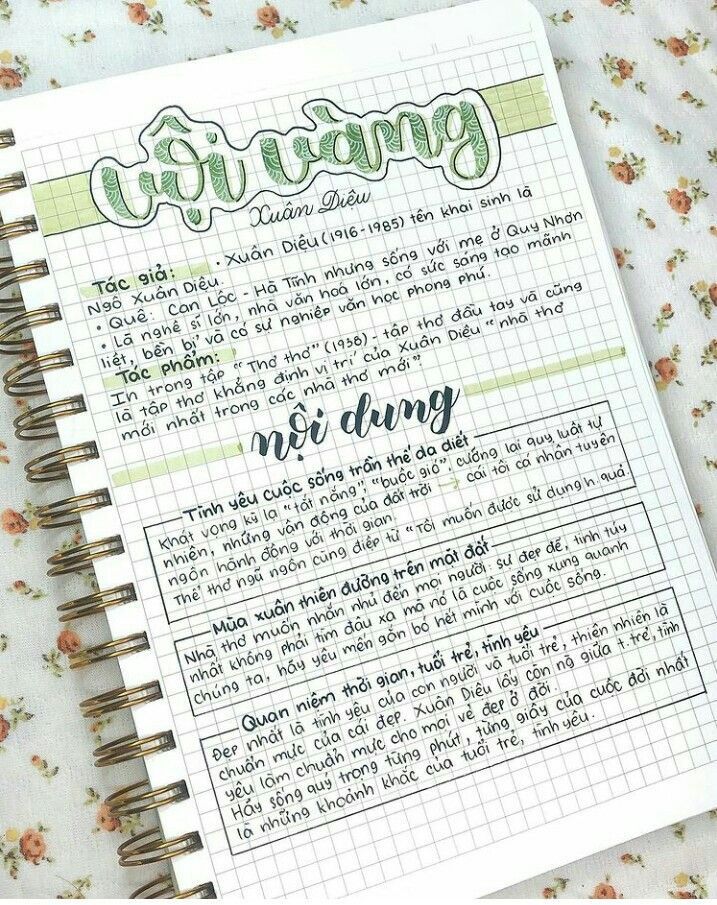 vội vàng
Xuân Diệu
Tác giả: • Xuân Diệu (1916-1985) tên khai sinh là
Ngô Xuân Diệu.
• Quê: Can Lộc - Hà Tĩnh nhưng sống với mẹ ở Quy Nhơn
• Là nghệ sĩ lớn, nhà văn hoá lớn, có sức sáng tạo mãnh
liệt, bền bỉ và có sự nghiệp văn học phong phú.
Tác phẩm:
In trong tập "Thơ thơ" (1938), tập thơ đầu tay và cũng
là tập thơ khẳng định vị trí của Xuân Diệu "nhà thơ
mới nhất trong các nhà thơ mới".
nội dung
Tình yêu cuộc sống trần thế da diết
Khát vọng kỳ lạ "tắt nắng", "buộc gió", cưỡng lại quy luật tự
nhiên, những vận động của đất trời → cái tôi cá nhân tuyên
ngôn hành động với thời gian.
Thể thơ ngũ ngôn cùng điệp từ "Tôi muốn được sử dụng h.quả.
Mùa xuân thiên đường trên mặt đất
Nhà thơ muốn nhắn nhủ đến mọi người: sự đẹp đẽ, tinh túy
nhất không phải tìm đâu xa mà nó là cuộc sống xung quanh
chúng ta, hãy yêu mến gắn bó hết mình với cuộc sống.
Quan niệm thời gian, tuổi trẻ, tình yêu
Đẹp nhất là tình yêu của con người và tuổi trẻ, thiên nhiên là
chuẩn mực của cái đẹp. Xuân Diệu lấy con ng giữa t.trẻ, tình
yêu làm chuẩn mực cho mọi vẻ đẹp ở đời.
Hãy sống quý trọng từng phút, từng giây của cuộc đời nhất
là những khoảnh khắc của tuổi trẻ, tình yêu.